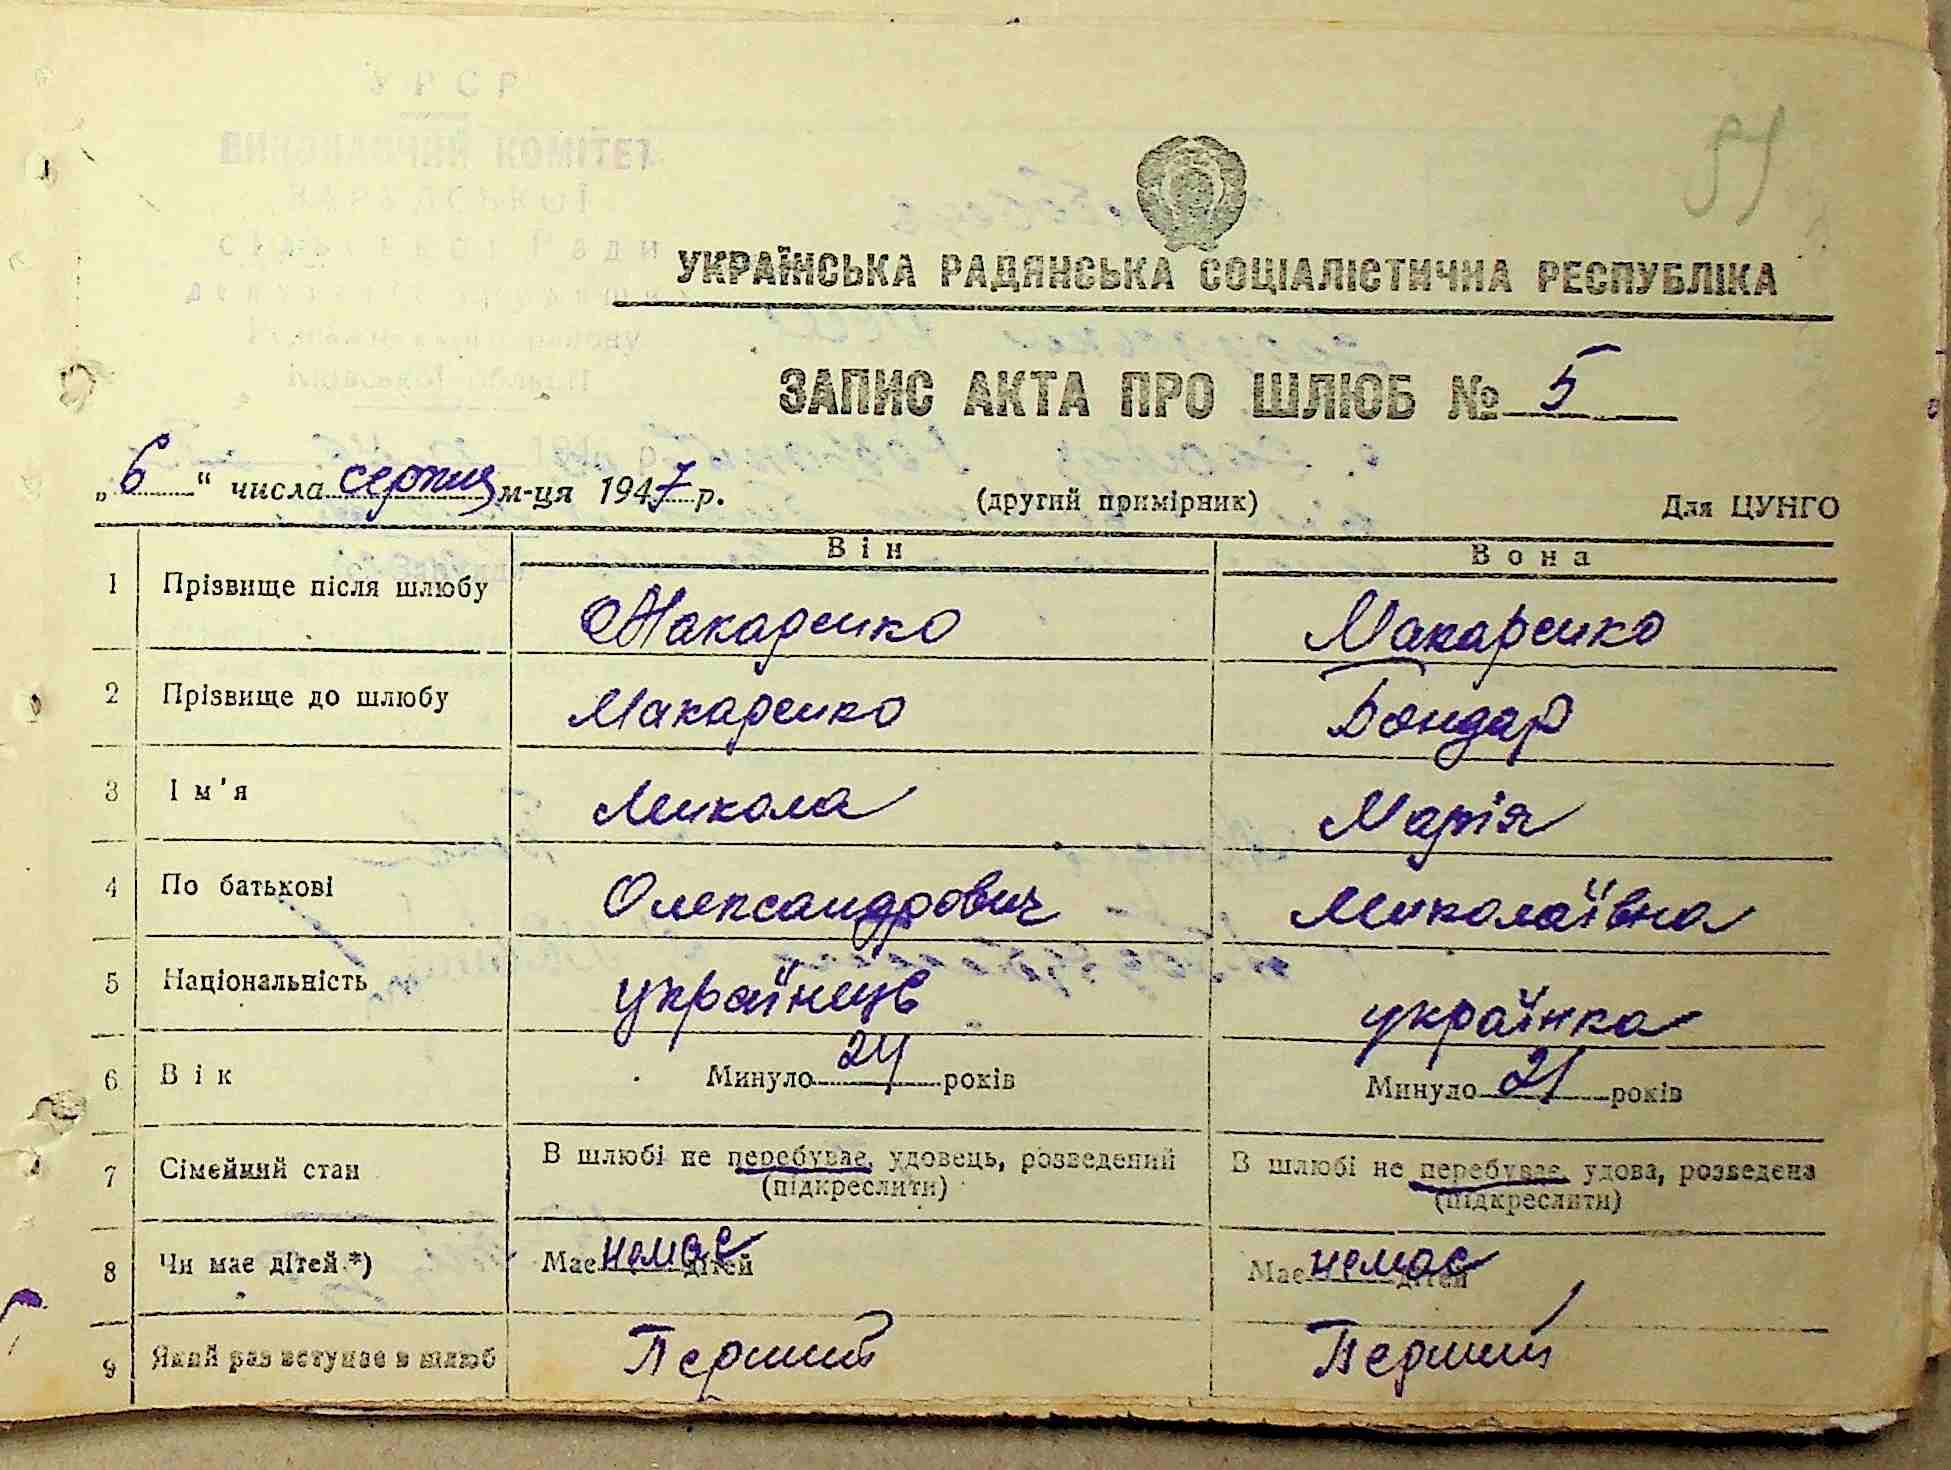 51
УКРАЇНСЬКА РАДЯНСЬКА СОЦІАЛІСТИЧНА РЕСПУБЛІКА
ЗАПИС АКТА ПРО ШЛЮБ № 5
„6“ числа серпня м-ця 1947 р. (другий примірник) Для ЦУНГО
Він Вона
1 Прізвище після шлюбу Макаренко Макаренко
2 Прізвище до шлюбу Макаренко Бондар
3 Ім'я Микола Марія
4 По батькові Олександрович Миколаївна
5 Національність українець українка
6 Вік Минуло 24 років Минуло 21 років
7 Сімейний стан В шлюбі не перебуває, удовець, розведений В шлюбі не перебуває, удова, розведена
(підкреслити) (підкреслити)
8 Чи має дітей *) Має немає дітей Має немає дітей
9 Який раз вступає в шлюб Перший Перший